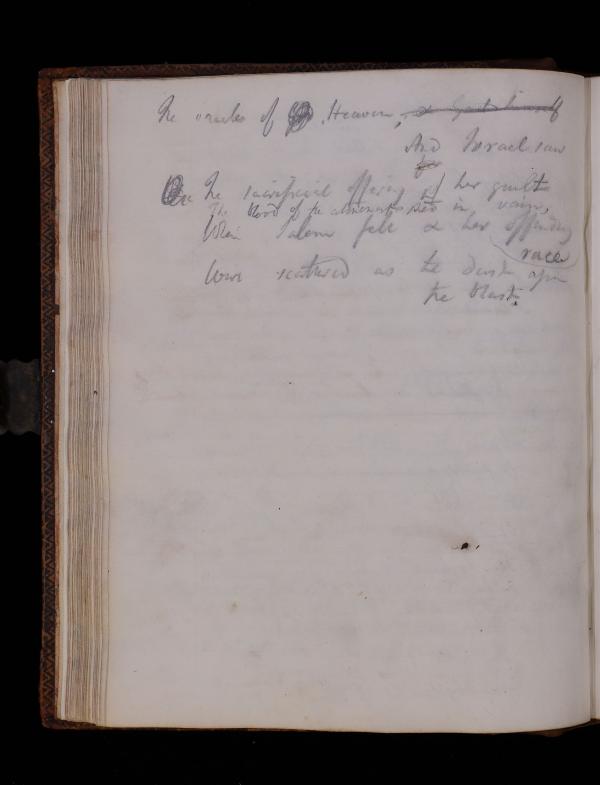 The oracles of Heaven, & God himself
And Israel saw
for
The sacrificial offering of her guilt
The blood of the atonements shed in vain,
When Salem fell & her offending
race
Were scattered as the dust upon
the blast.